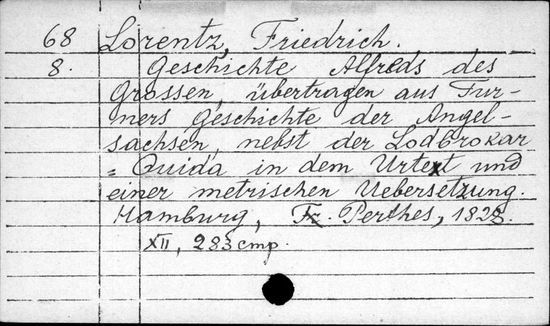 68 Lorentz, Friedrich.
8. Geschichte Alfreds des
Grossen, übertragen aus Tur-
ners Geschichte der Angel-
sachsen, nebst der Lodbrokar
= Quida in dem Urtext und
einer metrischen Uebersetzung.
Hamburg, Fr. Perthes, 1828.
XII, 283 cmp.